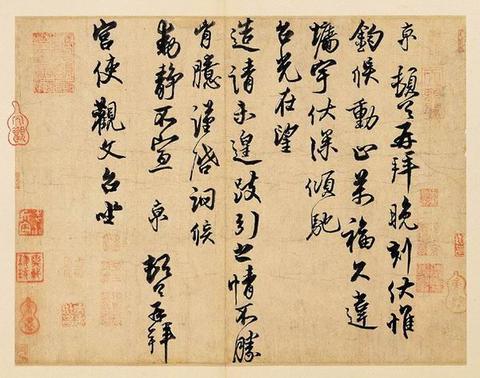 京 頓首再拜晚刻伏惟
鈞候動止萬福久違
牆宇伏深傾馳
台光在望
造請未遑跂引之情不勝
胷臆謹啓詞候
動靜不宣 京 頓首再拜
宮使觀文台坐